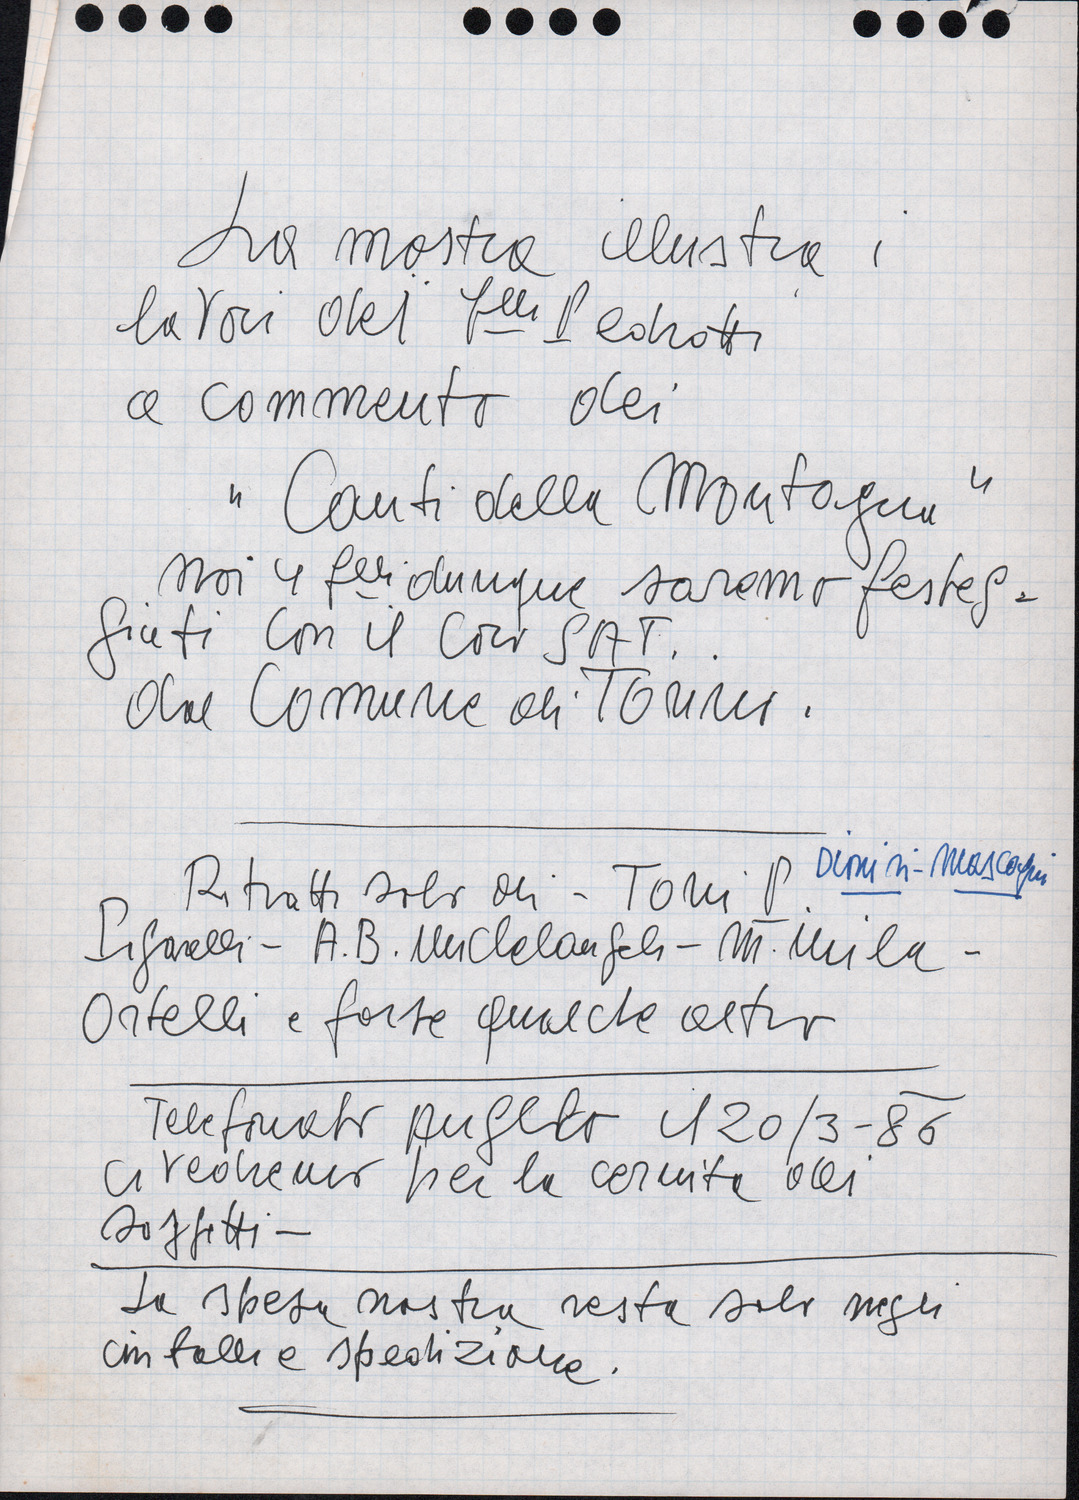 La mostra illustra i
lavori dei f.lli Pedrotti
a commento dei
"Canti della Montagna"
noi 4 f.lli dunque saremo festeg-
giati con il Coro SAT.
dal Comune di Torino.
Dionisi - Mascagni
Ritratti solo di - Toni P.
Pigarelli - A.B. Michelangeli - M. Mila -
Ortelli e forse qualche altro
Telefonato Anghelo il 20/3-86
ci vedremo per la cernita dei
soggetti -
La spesa nostra resta solo negli
imballi e spedizione.